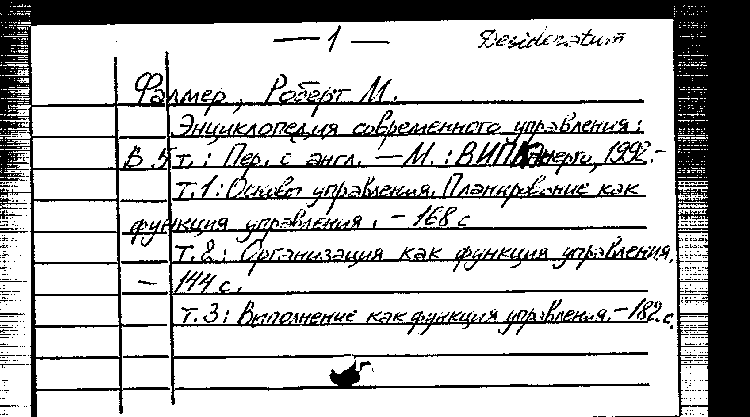 — 1 —
Desideratum
Фалмер, Роберт М.
Энциклопедия современного управления:
В 5 т.: Пер. с англ. — М.: ВИПКэнерго, 1992.-
Т.1: Основы управления. Планирование как
функция управления. - 168 с
Т.2: Организация как функция управления.
— 144 с.
Т.3: Выполнение как функция управления.- 182 с.